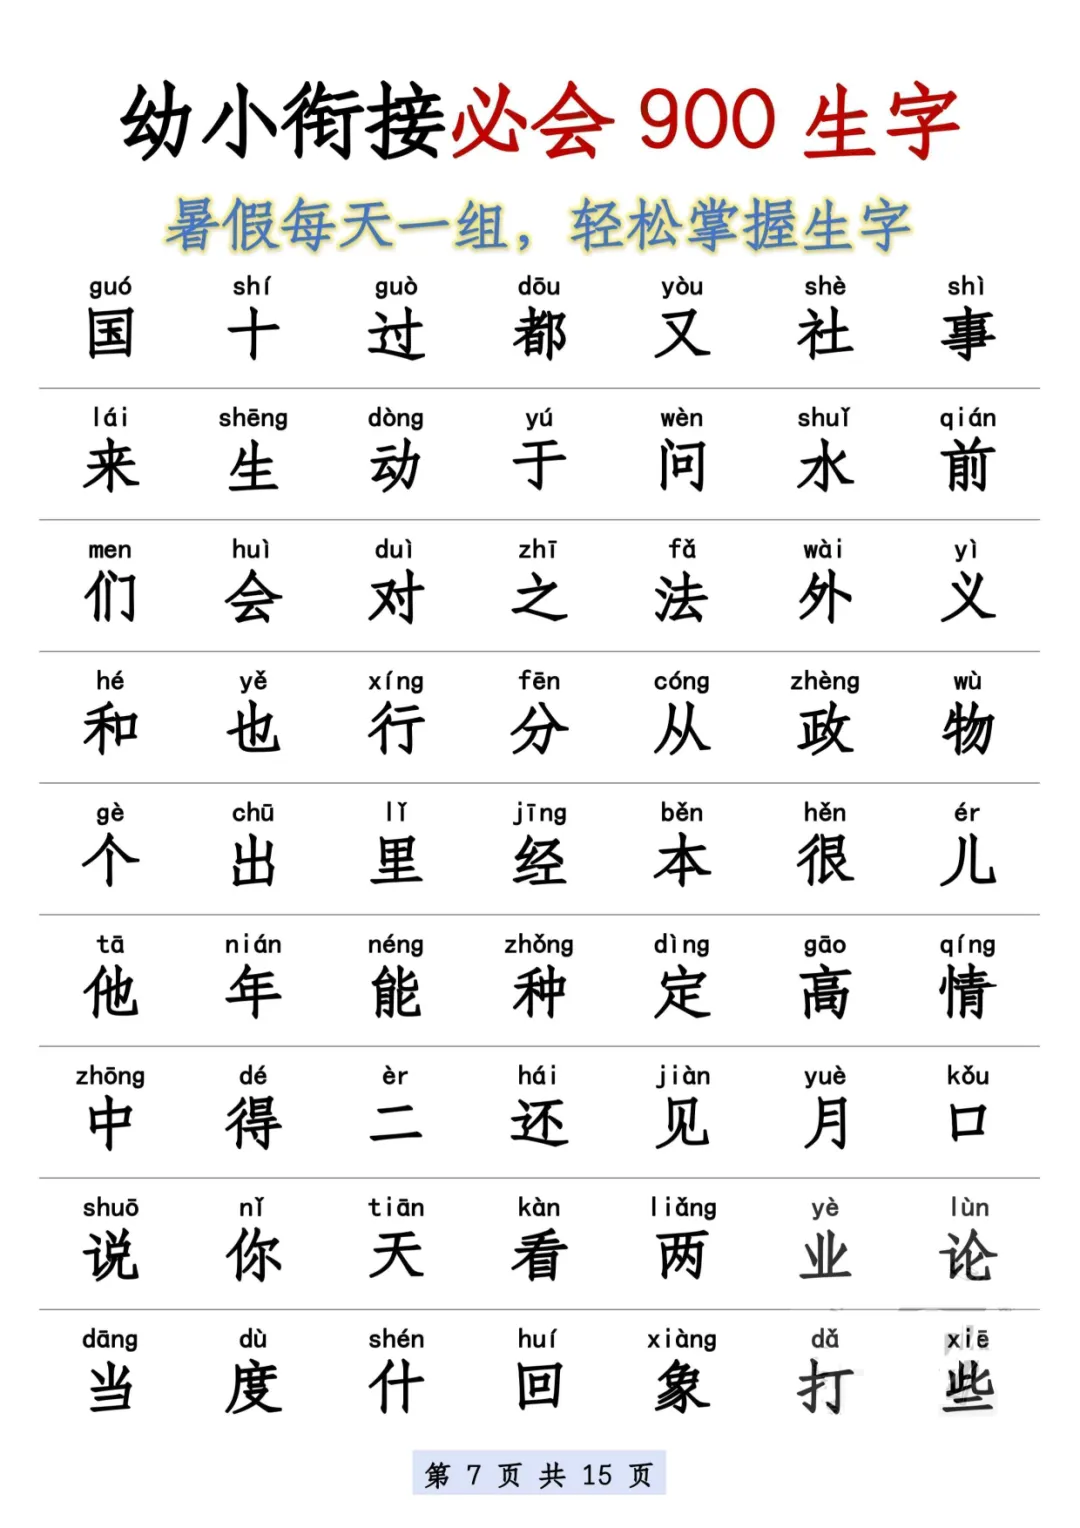 幼小衔接必会 900 生字
暑假每天一组，轻松掌握生字
guó shí guò dōu yòu shè shì
国 十 过 都 又 社 事
lái shēng dòng yú wèn shuǐ qián
来 生 动 于 问 水 前
men huì duì zhī fǎ wài yì
们 会 对 之 法 外 义
hé yě xíng fēn cóng zhèng wù
和 也 行 分 从 政 物
gè chū lǐ jīng běn hěn ér
个 出 里 经 本 很 儿
tā nián néng zhǒng dìng gāo qíng
他 年 能 种 定 高 情
zhōng dé èr hái jiàn yuè kǒu
中 得 二 还 见 月 口
shuō nǐ tiān kàn liǎng yè lùn
说 你 天 看 两 业 论
dāng dù shén huí xiàng dǎ xiē
当 度 什 回 象 打 些
第 7 页 共 15 页